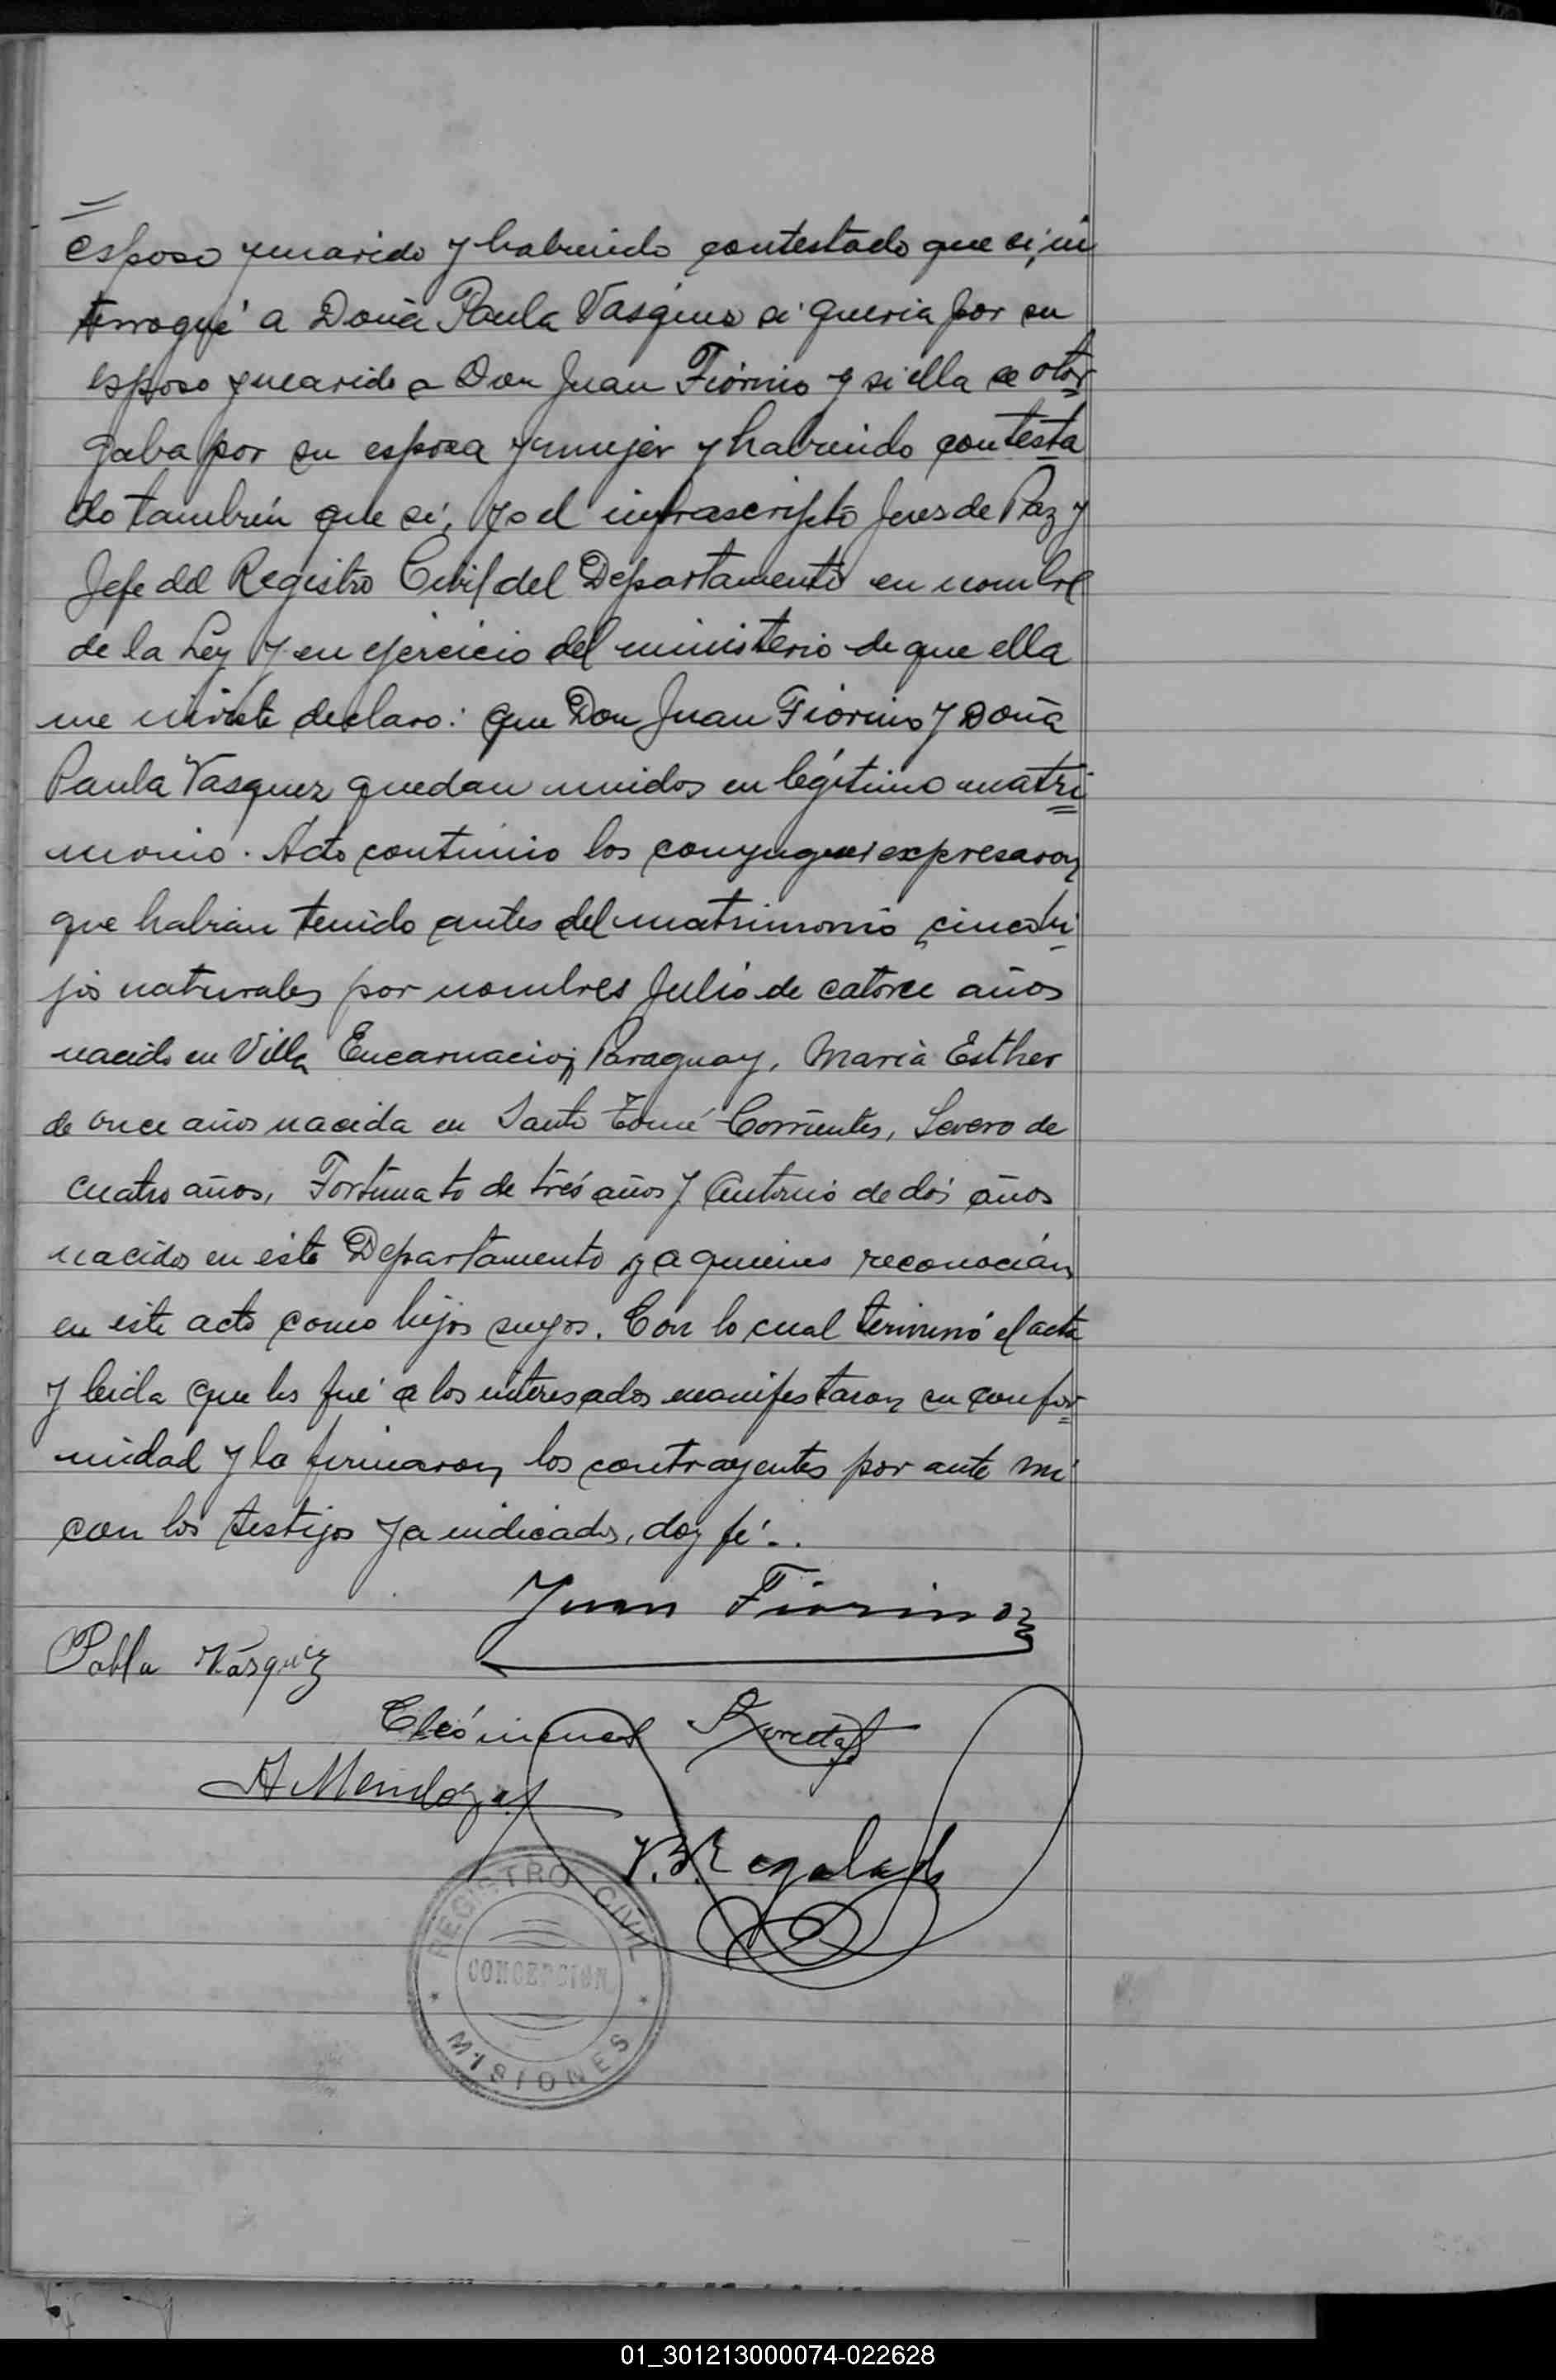 esposo y marido y habiendo contestado que si, in
terrogué a Doña Paula Vasquez si queria por su
esposo y marido a Don Juan Fiorino y si ella se otor
gaba por su esposa y mujer y habiendo contesta
do también que sí, yo el infrascripto Jues de Paz y
Jefe del Registro Civil del Departamento en nombre
de la Ley y en ejercicio del ministerio de que ella
me inviste declaro: que Don Juan Fiorino y Doña
Paula Vasquez quedan unidos en legítimo matri
monio. Acto continuo los conyugues expresaron
que habian tenido antes del matrimonio cinco hi
jos naturales por nombres Julio de catorce años
nacido en Villa Encarnacion Paraguay, Maria Esther
de once años nacida en Santo Tomé Corrientes, Severo de
cuatro años, Fortunato de tres años y Antonio de dos años
nacidos en este Departamento y a quienes reconocian
en este acto como hijos suyos. Con lo cual terminó el acta
y leida que les fué a los interesados manifestaron su confor
midad y la firmaron los contrayentes por ante mi
con los testigos ya indicados, doy fé..
Juan Fiorino
Pabla Vásquez
A Mendoza
V. B. Regalado
REGISTRO CIVIL
CONCEPCION
MISIONES
01_301213000074-022628